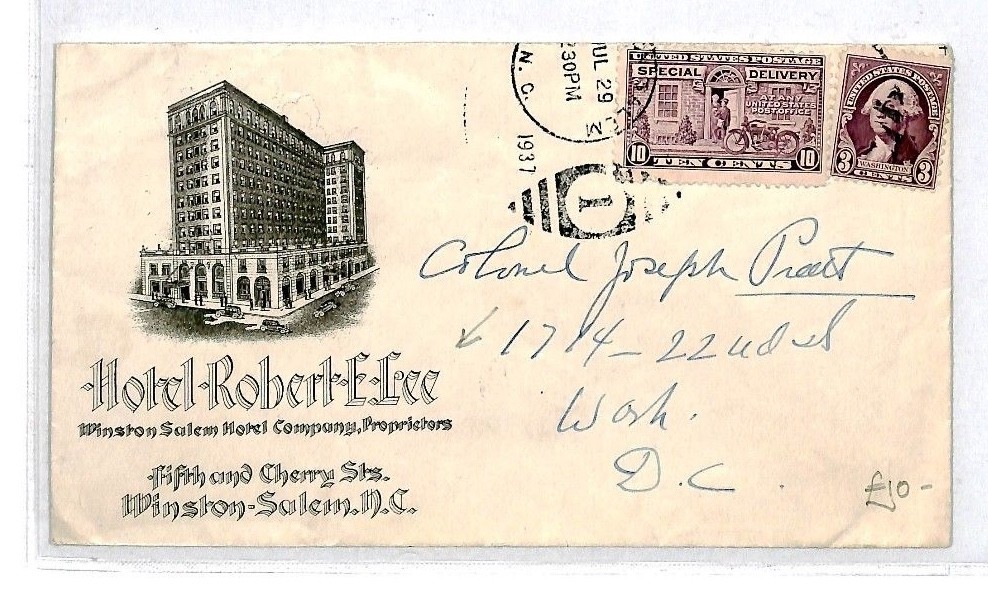 N. C.
JUL 29
230PM
1937
1
UNITED STATES POSTAGE
SPECIAL DELIVERY
UNITED STATES
POST OFFICE
10 TEN CENTS 10
UNITED STATES POSTAGE
WASHINGTON
3 CENTS 3
Colonel Joseph Pratt
1714 - 22nd St
Wash.
D.C.
Hotel Robert E. Lee
Winston Salem Hotel Company, Proprietors
Fifth and Cherry Sts.
Winston-Salem, N.C.
£10-